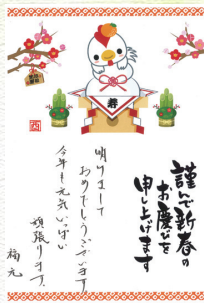 寿
酉
謹んで新春の
お慶びを
申し上げます
明けまして
おめでとうございます
今年も元気いっぱい
頑張ります。
福元